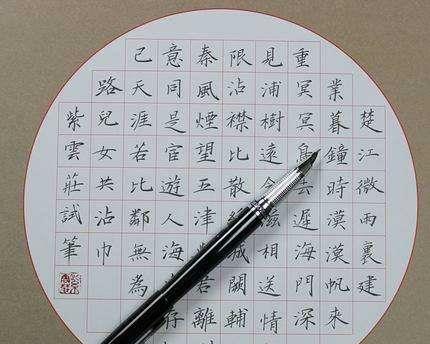 楚江微雨裏建
業暮鐘時漠漠帆來
重冥冥鳥去遲海門深
見浦樹遠含滋相送情
限沾襟比散絲城闕輔
秦風煙望五津君離
意同是宦遊人海存
己天涯若比鄰無為
路兒女共沾巾
紫雲莊試筆